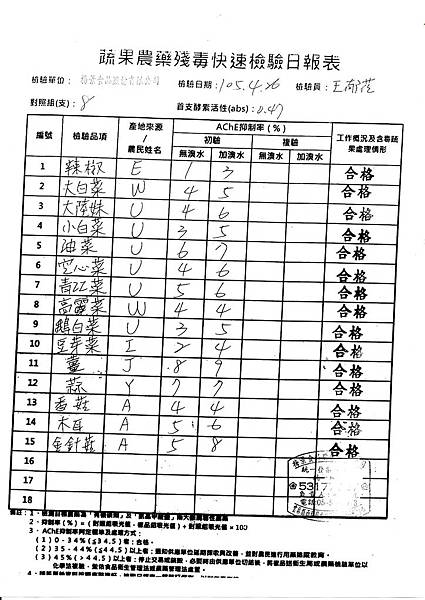 蔬果農藥殘毒快速檢驗日報表
檢驗單位： 檢驗日期：105.4.26 檢驗員：王
對照組(支)：8 首支酵素活性(abs)：0.47
編號 檢驗品項 產地來源/農民姓名 AChE抑制率(%) 工作概況及含毒蔬果處理情形
初驗 複驗
無溴水 加溴水 無溴水 加溴水
1 辣椒 E 1 3 合格
2 大白菜 W 4 5 合格
3 大陸妹 U 4 6 合格
4 小白菜 U 3 5 合格
5 油菜 U 6 7 合格
6 空心菜 U 4 6 合格
7 青江菜 U 5 6 合格
8 高麗菜 W 4 4 合格
9 鵝白菜 U 3 5 合格
10 豆芽菜 I 2 4 合格
11 薑 J 8 9 合格
12 蒜 Y 7 7 合格
13 香菇 A 4 4 合格
14 木耳 A 5 6 合格
15 金針菇 A 5 8 合格
16
17
18
2、抑制率(%)=(對照組吸光值-樣品組吸光值)÷對照組吸光值×100
3、AChE抑制率判定標準及處理方式：
(1)0-34%(≦34.5)者：合格。